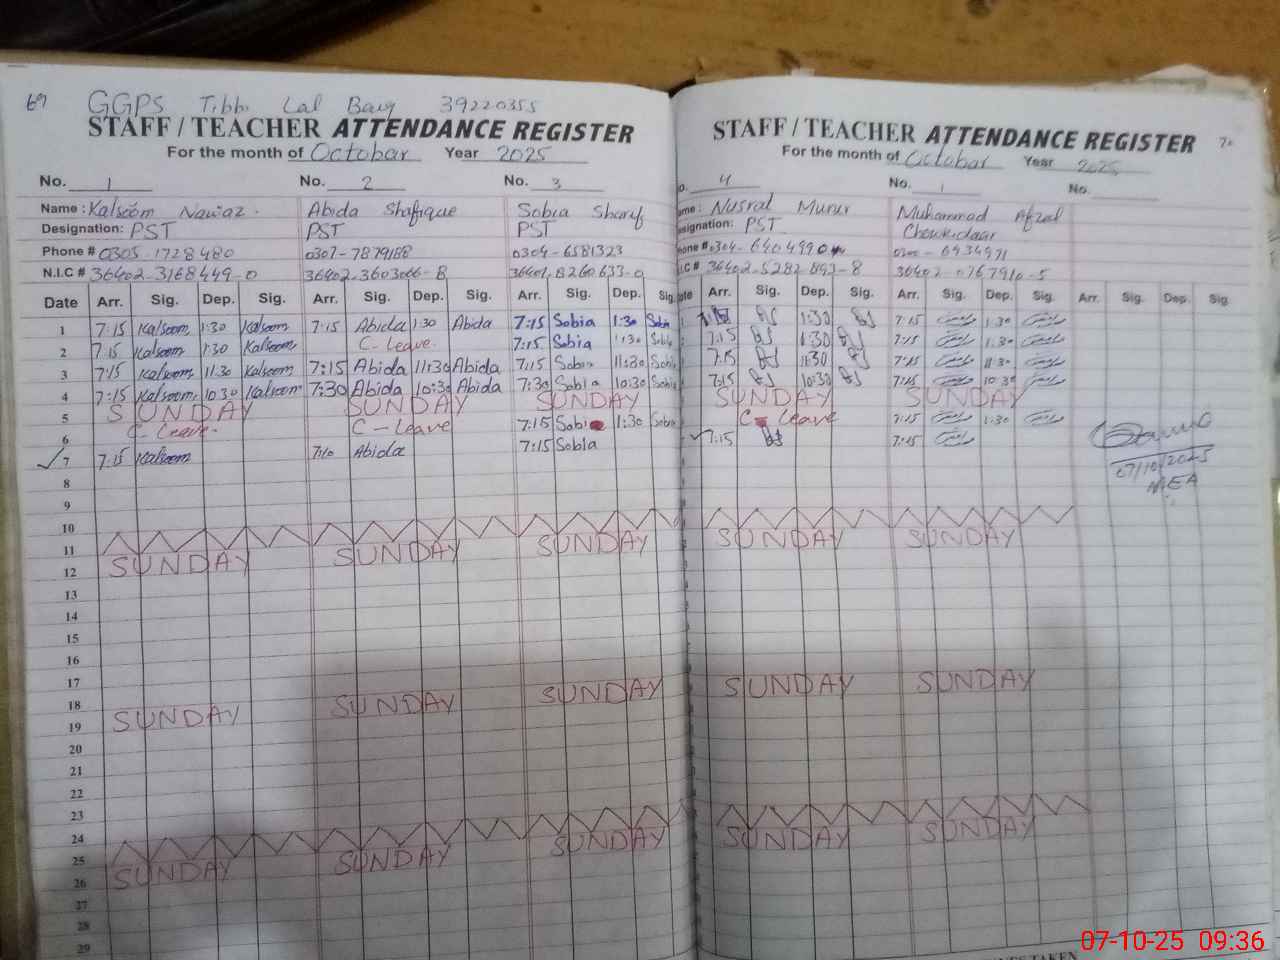 69 GGPS Tibbi Lal Baig 39220355
STAFF / TEACHER ATTENDANCE REGISTER
For the month of Octobar Year 2025
No. 1 No. 2 No. 3
Name : Kalsoom Nawaz. Abida Shafique Sobia Sharif
Designation: PST PST PST
Phone # 0305-1728480 0307-7879188 0304-6581323
N.I.C # 36402-3168449-0 36402-3603066-8 36401-8260633-0
Date Arr. Sig. Dep. Sig. Arr. Sig. Dep. Sig. Arr. Sig. Dep. Sig.
1 7:15 Kalsoom 1:30 Kalsoom 7:15 Abida 1:30 Abida 7:15 Sobia 1:30 Sobia
2 7:15 Kalsoom 1:30 Kalsoom C-Leave. 7:15 Sobia 1:30 Sobia
3 7:15 Kalsoom 11:30 Kalsoom 7:15 Abida 11:30 Abida 7:15 Sobia 11:30 Sobia
4 7:15 Kalsoom 10:30 Kalsoom 7:30 Abida 10:30 Abida 7:30 Sobia 10:30 Sobia
5 SUNDAY SUNDAY SUNDAY
6 C-Leave. C-Leave 7:15 Sobia 1:30 Sobia
7 7:15 Kalsoom 7:10 Abida 7:15 Sobia
8
9
10
11
12 SUNDAY SUNDAY SUNDAY
13
14
15
16
17
18
19 SUNDAY SUNDAY SUNDAY
20
21
22
23
24
25
26 SUNDAY SUNDAY SUNDAY
27
28
29
STAFF / TEACHER ATTENDANCE REGISTER
For the month of Octobar Year 2025
No. 4 No. 1 No.
Name: Nusrat Munir Muhammad Afzal
Designation: PST Chowkidaar
Phone # 0304-6404990
N.I.C # 36402-5282893-8 36402-0767910-5
Date Arr. Sig. Dep. Sig. Arr. Sig. Dep. Sig. Arr. Sig. Dep. Sig.
1:30 7:15 1:30
7:15 1:30 7:15 1:30
7:15 11:30 7:15 11:30
7:15 10:30 7:15 10:30
SUNDAY SUNDAY
C- Leave 7:15 1:30
7:15 7:15
07/10/2025
MEA
SUNDAY SUNDAY
SUNDAY SUNDAY
SUNDAY SUNDAY
07-10-25 09:36